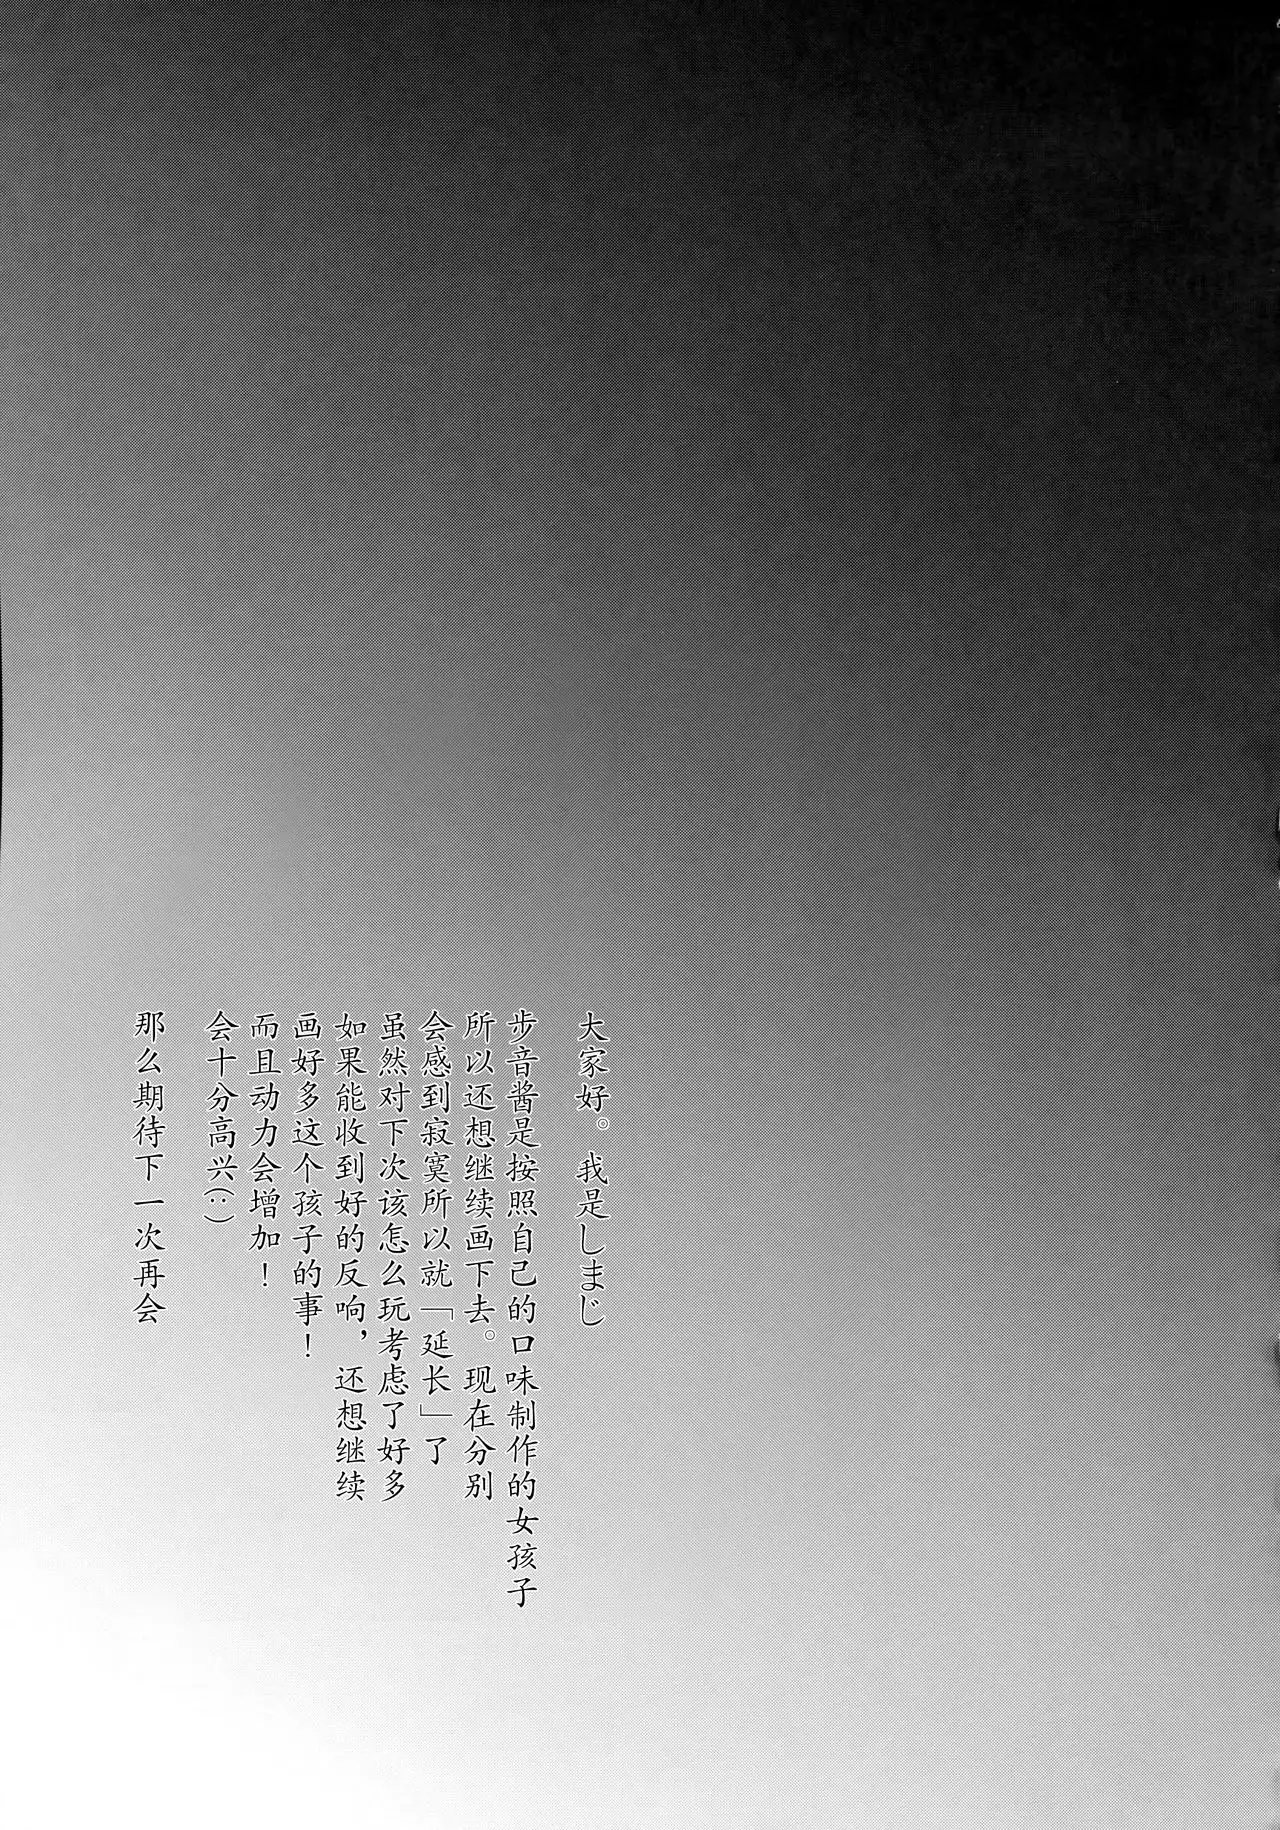 大家好。我是しまじ
步音酱是按照自己的口味制作的女孩子
所以还想继续画下去。现在分别
会感到寂寞所以就「延长」了
虽然对下次该怎么玩考虑了好多
如果能收到好的反响，还想继续
画好多这个孩子的事！
而且动力会增加！
会十分高兴(:)
那么期待下一次再会